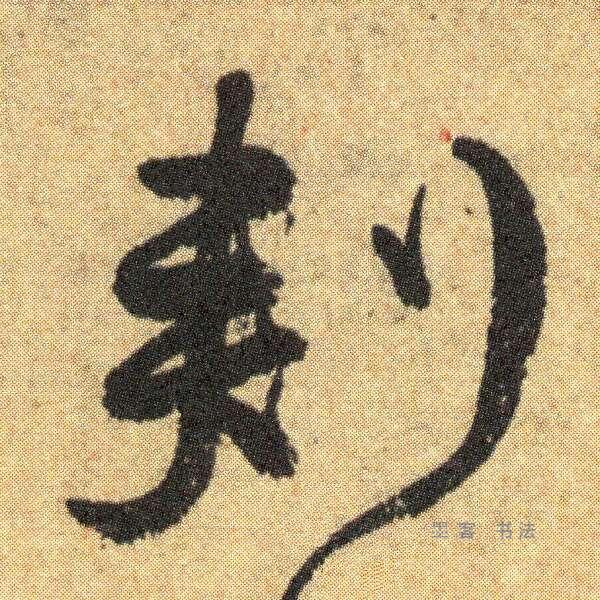 刺
墨客 书法